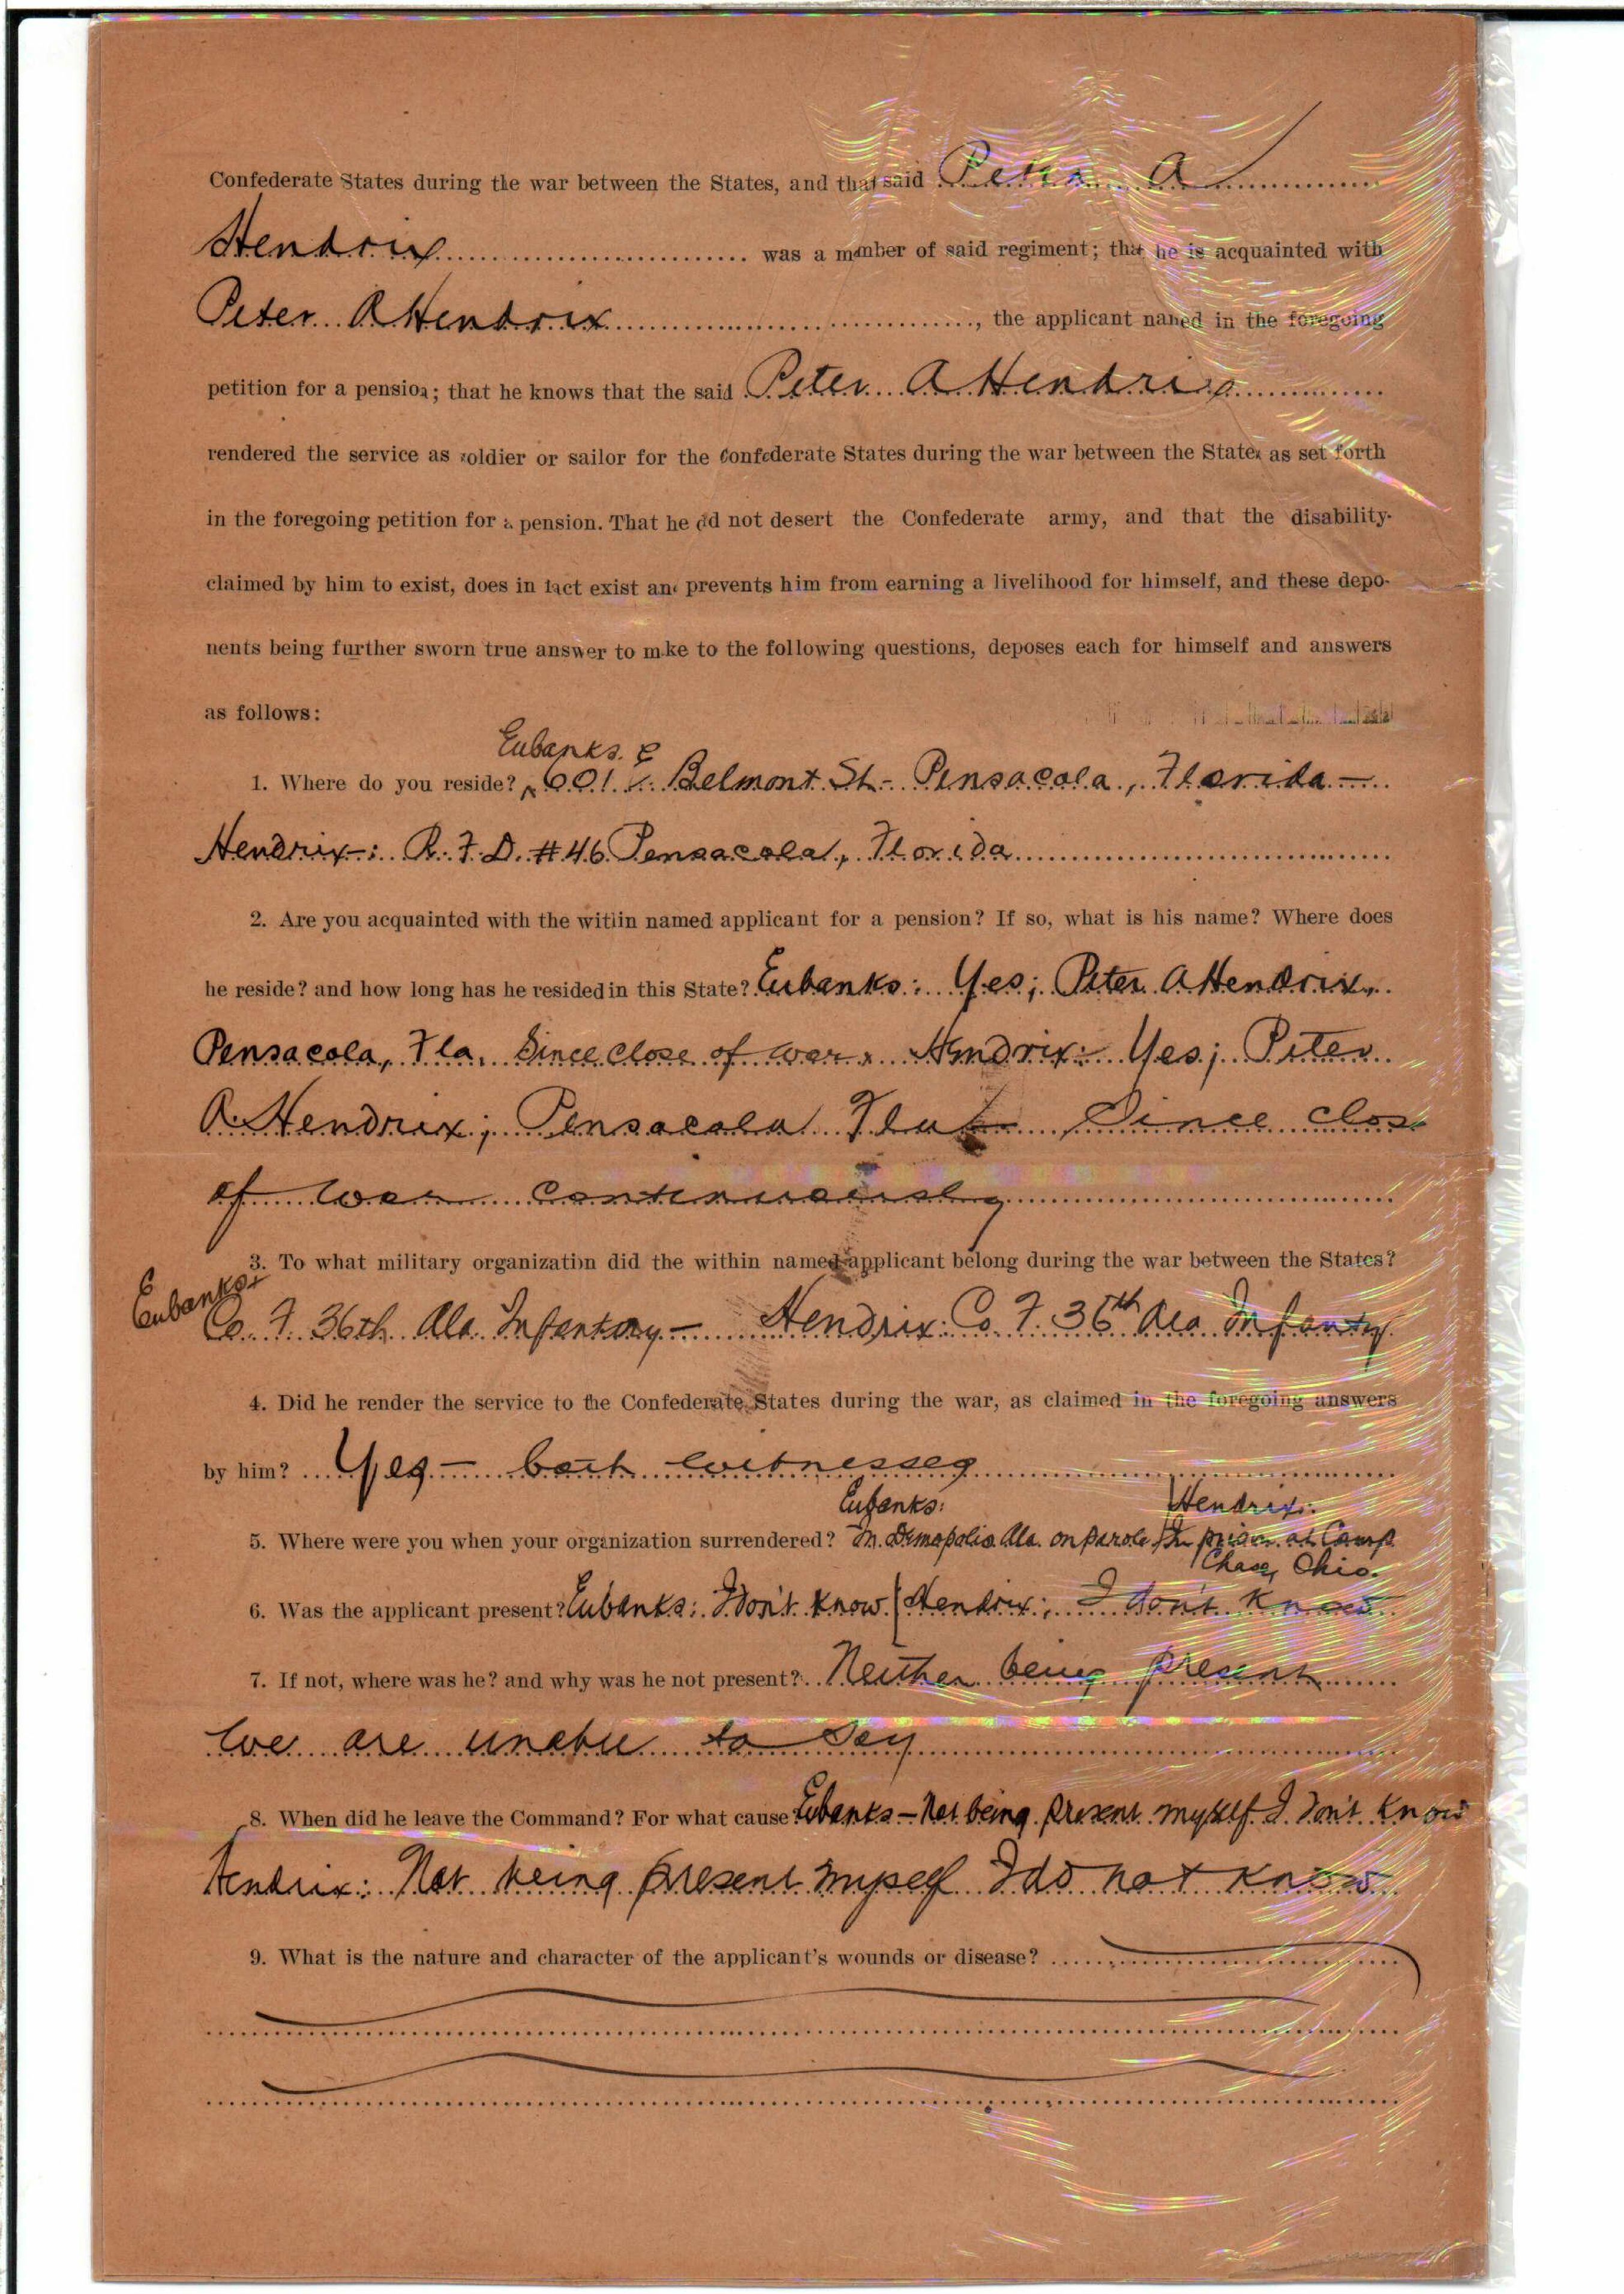 Confederate States during the war between the States, and that said Peter A
Hendrix was a member of said regiment; that he is acquainted with
Peter A Hendrix, the applicant named in the foregoing
petition for a pension; that he knows that the said Peter A Hendrix
rendered the service as soldier or sailor for the Confederate States during the war between the States as set forth
in the foregoing petition for a pension. That he did not desert the Confederate army, and that the disability
claimed by him to exist, does in fact exist and prevents him from earning a livelihood for himself, and these depo-
nents being further sworn true answer to make to the following questions, deposes each for himself and answers
as follows:
Eubanks. E
1. Where do you reside? 601 Belmont St - Pensacola, Florida —
Hendrix-: R.F.D. #46 Pensacola, Florida
2. Are you acquainted with the within named applicant for a pension? If so, what is his name? Where does
he reside? and how long has he resided in this State? Eubanks: Yes; Peter A Hendrix,
Pensacola, Fla. Since close of war. Hendrix: Yes; Peter
A. Hendrix; Pensacola Fla Since close
of war continuously
3. To what military organization did the within named applicant belong during the war between the States?
Eubanks
Co. F. 36th Ala Infantry — Hendrix: Co. F. 36th Ala Infantry
4. Did he render the service to the Confederate States during the war, as claimed in the foregoing answers
by him? Yes — both witnesses
Eubanks: Hendrix:
5. Where were you when your organization surrendered? In Demopolis Ala. on parole In prison at Camp
Chase, Ohio.
6. Was the applicant present? Eubanks: I don't know Hendrix: I don't know
7. If not, where was he? and why was he not present? Neither being present
we are unable to say
8. When did he leave the Command? For what cause? Eubanks — Not being present myself I don't know
Hendrix: Not being present myself I do not know
9. What is the nature and character of the applicant's wounds or disease?